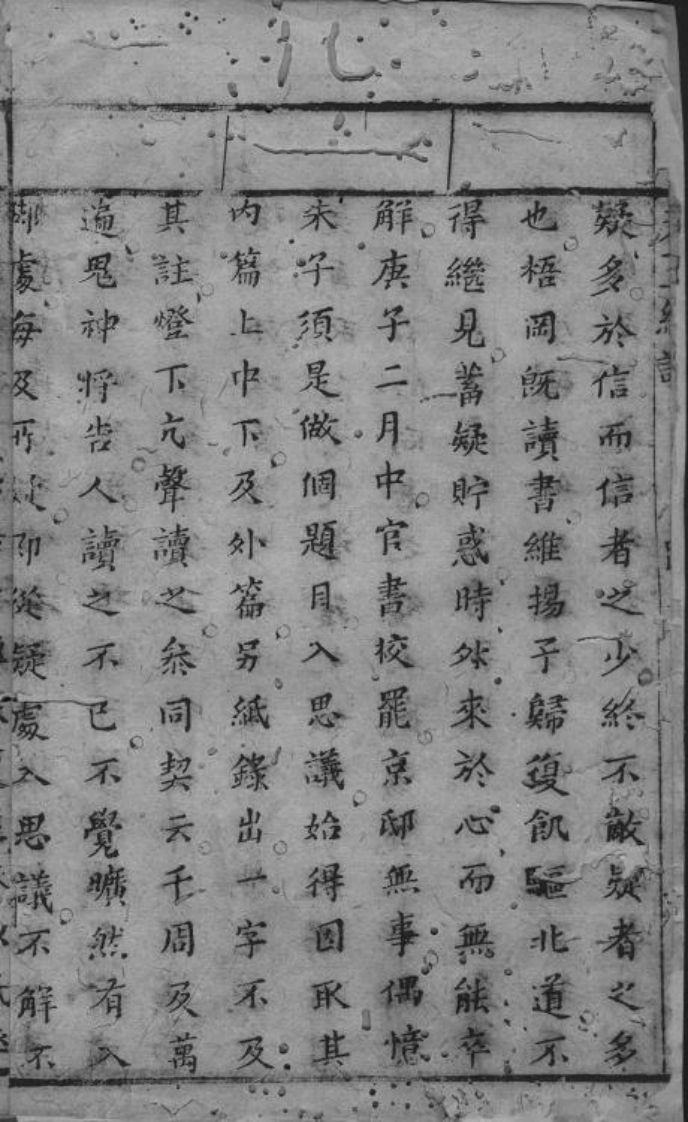 疑多於信而信者之少終不敵疑者之多
也梧岡旣讀書維揚予歸復飢驅北道不
得繼見蓄疑貯惑時欻來於心而無能卒
解庚子二月中官書校罷京邸無事偶憶
朱子須是做個題目入思議始得因取其
内篇上中下及外篇另紙錄出一字不及
其註燈下亢聲讀之叅同契云千周及萬
遍鬼神将告人讀之不已不覺曠然有入
處每及所疑即從疑處入思議不解不